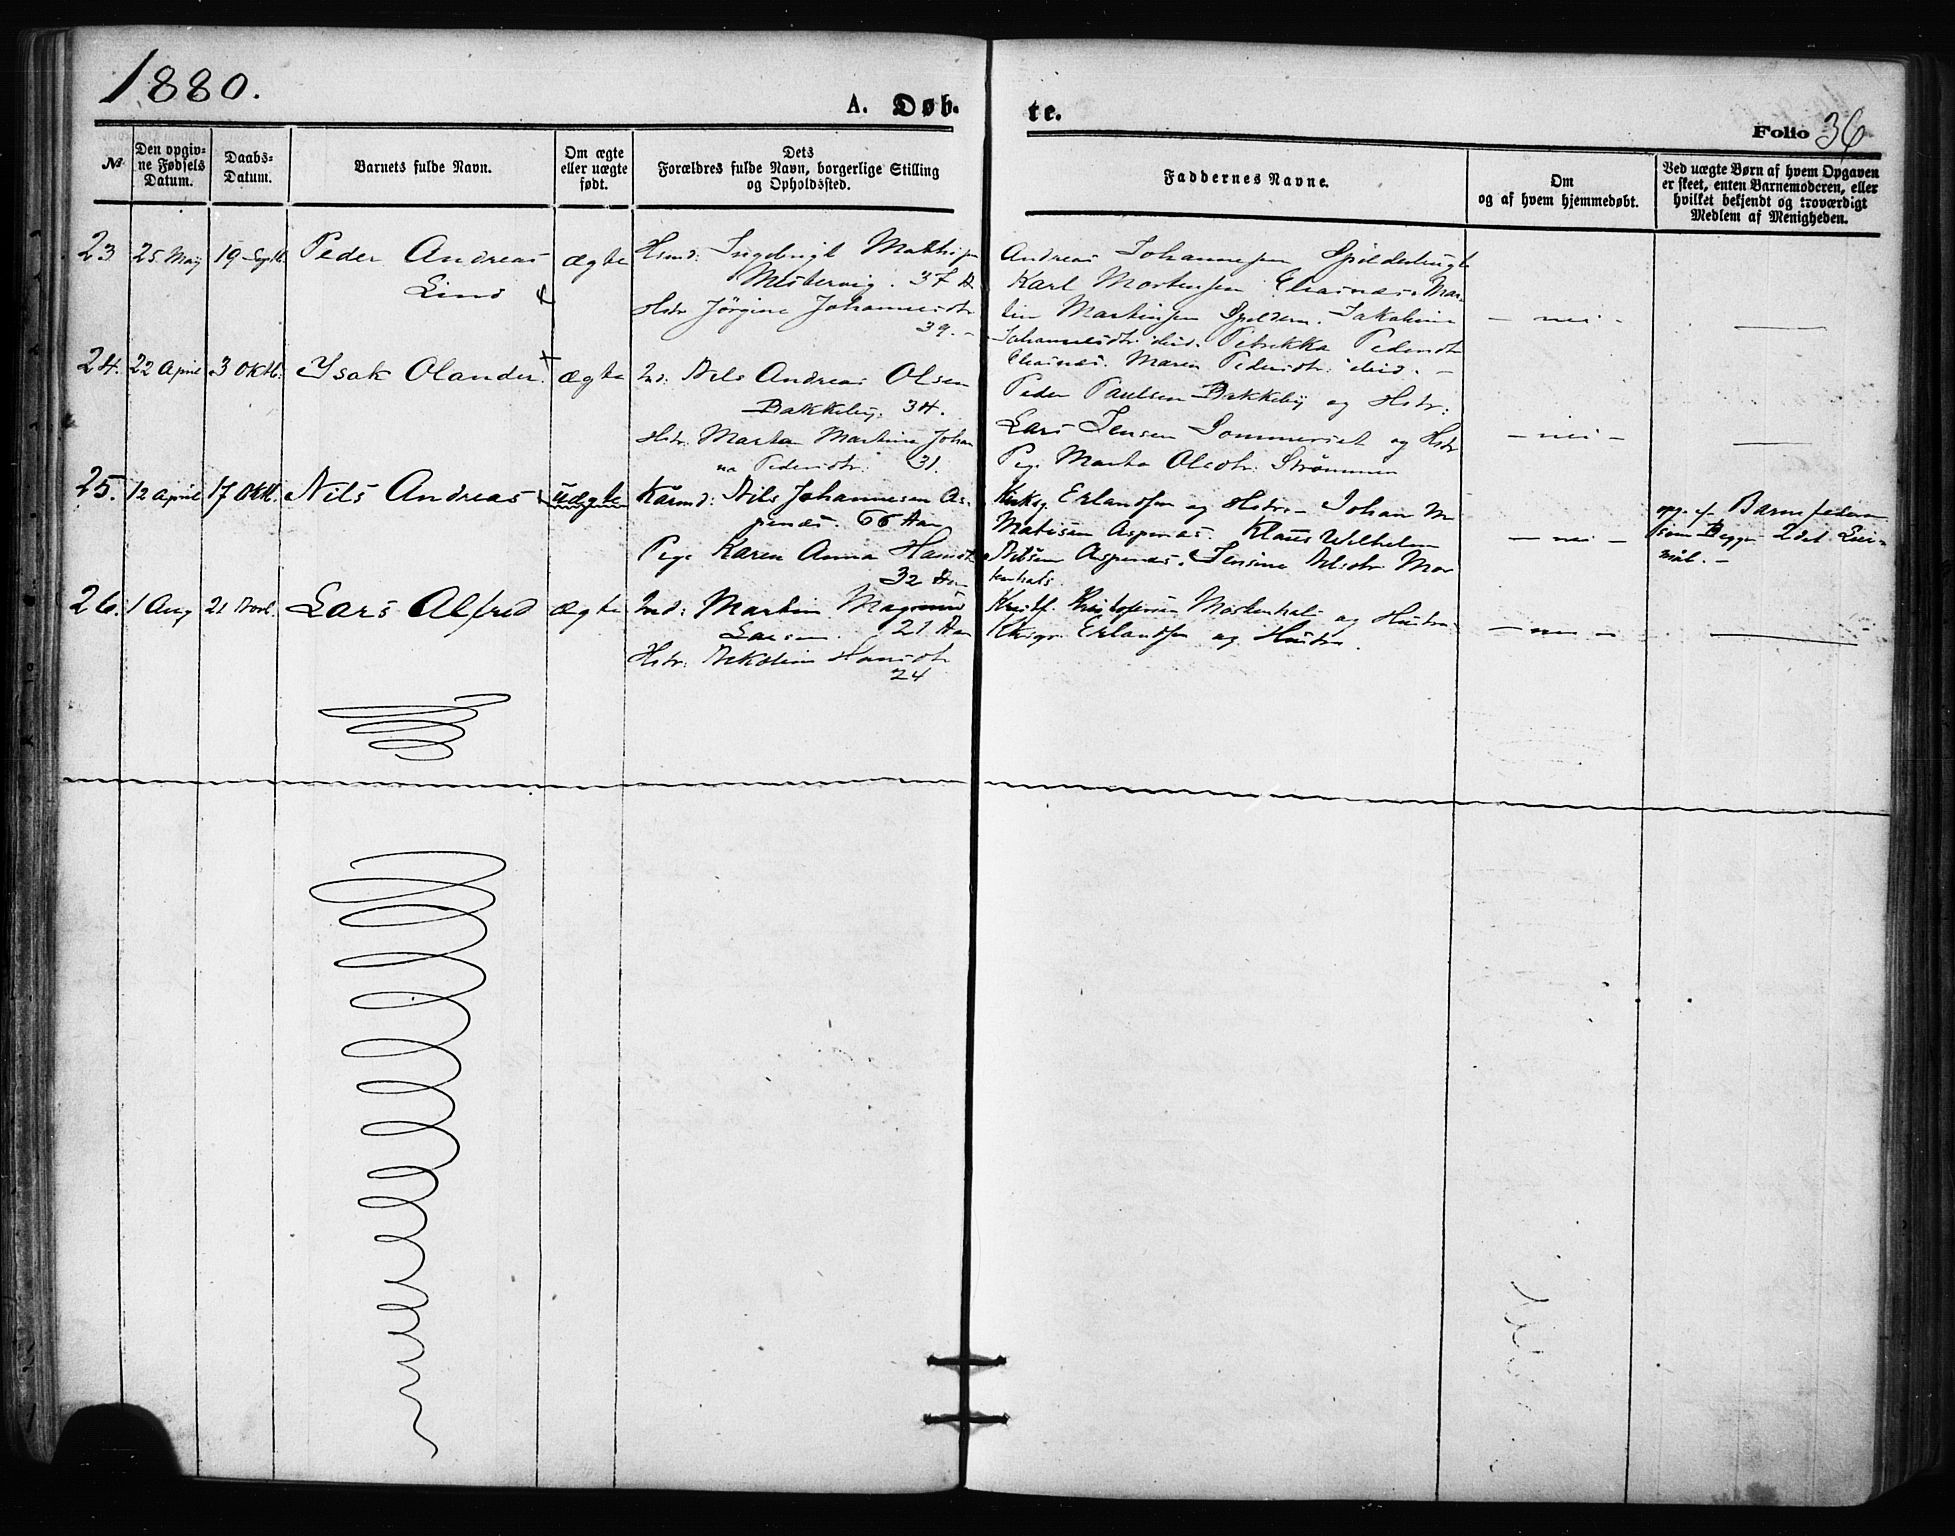 1880.
A. Døb-
te.
Folio 36
№
Den opgiv-
ne Fødsels
Datum.
Daabs-
Datum.
Barnets fulde Navn.
Om ægte
eller uægte
født.
Dets
Forældres fulde Navn, borgerlige Stilling
og Opholdssted.
Faddernes Navne.
Om
og af hvem hjemmedøbt.
Ved uægte Børn af hvem Opgaven
er skeet, enten Barnemoderen, eller
hvilket bekjendt og troværdigt
Medlem af Menigheden.
23 25 May 19 Septb. Peder Andreas
Lind
ægte
Ingebrigt
37
Hstr Jørgine Johannesdtr
39. -
Andreas Johannesen
Karl Mortensen
Martinsen
Pedersdtr
Maren Pedersdtr: ibid. -
- nei -
24. 22 April 3 Oktb. Ysak Olander.
ægte
Ind: Nils Andreas Olsen
Bakkeby. 34.
Hstr: Marta Martine Johan
na Pedersdtr. 31.
Peder Paulsen Bakkeby og Hstr:
Lars Jensen Sommerset og Hstr
Pige Marta Olsdtr. Strømmen
- nei -
25. 12 April 17 Oktb. Nils Andreas
uægte
Nils Johannesen As-
penæs. 66 Aar
Pige Karen Anna Hansdtr
32 Aar
Erlandsen og Hstr. - Johan M
Matisen Aspenæs. Klaus Wilhelm
Nilsen Aspenæs. Jensine Nilsdtr Mor
tenhals.
- nei -
opg. af Barnefaderen
som Begges 2det Lei-
maal. -
26. 1 Aug 21 Novb. Lars Alfred ægte
Ind: Martin Magnus
Larsen. 21 Aar
Hstr: Nikoline Hansdtr
24
Kristf. Kristofersen Mortenhals og Hustru
Kirksgr. Erlandsen og Hustru.
- nei -